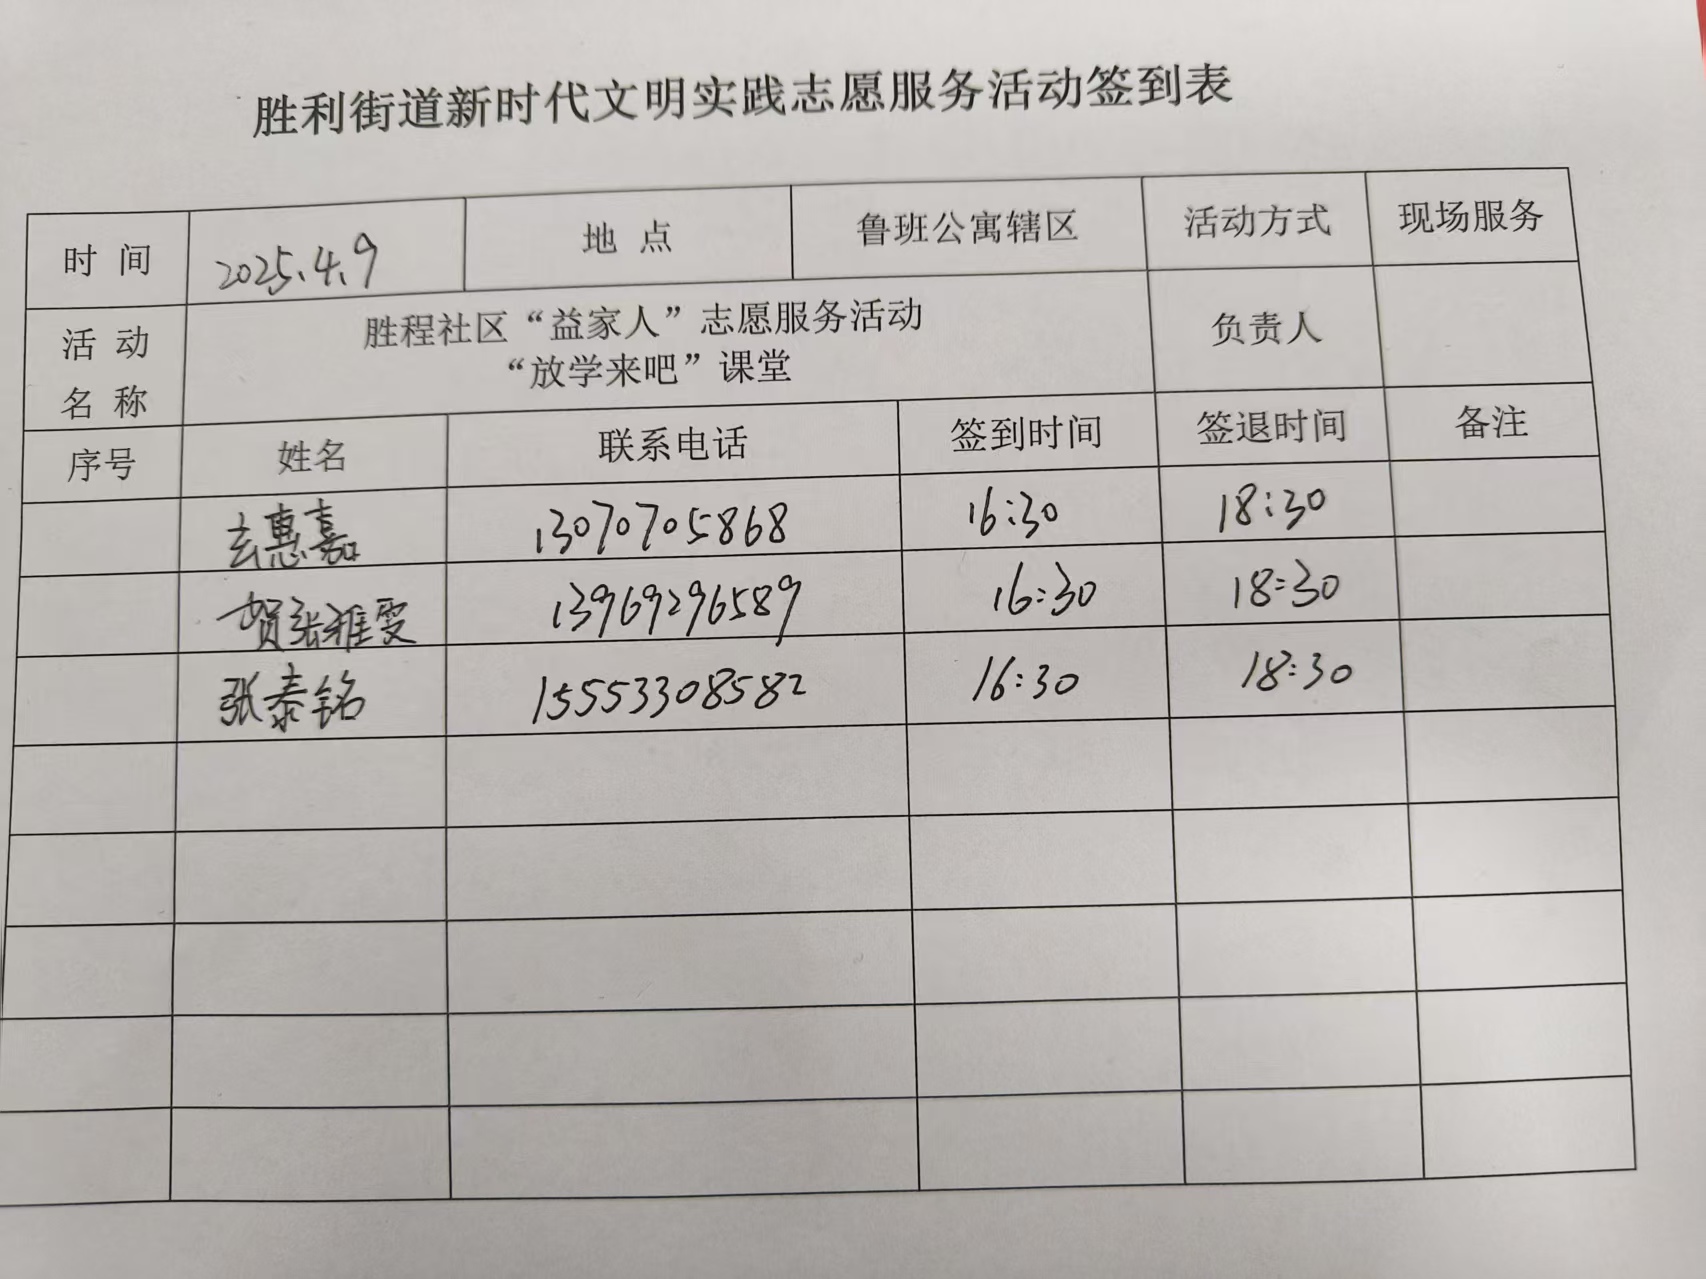 胜利街道新时代文明实践志愿服务活动签到表
时 间 2025.4.9 地 点 鲁班公寓辖区 活动方式 现场服务
活 动
名 称
胜程社区“益家人”志愿服务活动
“放学来吧”课堂
负责人
序号 姓名 联系电话 签到时间 签退时间 备注
玄惠嘉 13070705868 16:30 18:30
贺张雅雯 13969296589 16:30 18:30
张泰铭 15553308582 16:30 18:30